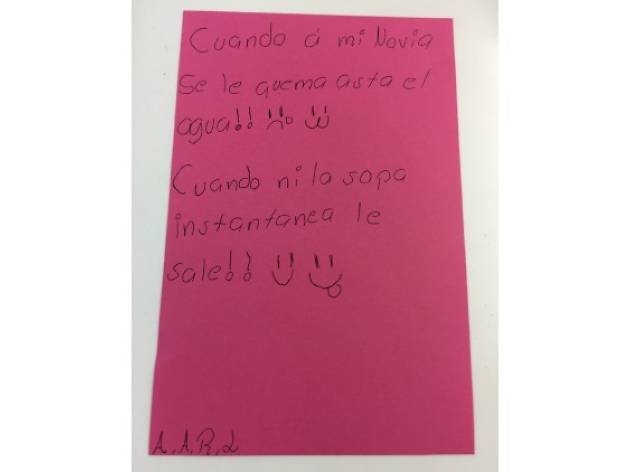 Cuando á mi Novia
Se le quema asta el
agua!!
Cuando ni la sopa
instantanea le
sale!!
A.A.R.L